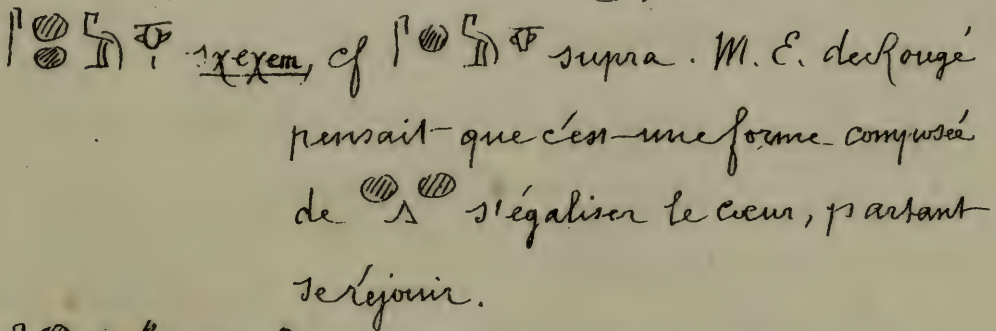 𓋴𓐍𓐍𓅓𓄣 sχeχem, cf 𓋴𓐍𓅓𓄣 supra. M. E. de Rougé
pensait que c'est une forme composée
de 𓐍𓂻𓐍 s'égaliser le cœur, partant
se réjouir.